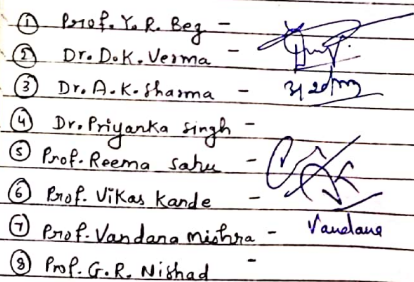 ① Prof. Y. R. Beg -
② Dr. D.K. Verma -
③ Dr. A.K. Sharma -
④ Dr. Priyanka Singh -
⑤ Prof. Reema Sahu -
⑥ Prof. Vikas Kande -
⑦ Prof. Vandana Mishra - Vandana
⑧ Prof. G.R. Nishad -